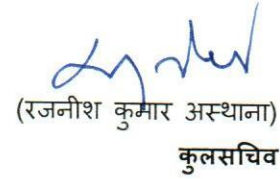 (रजनीश कुमार अस्थाना)
कुलसचिव